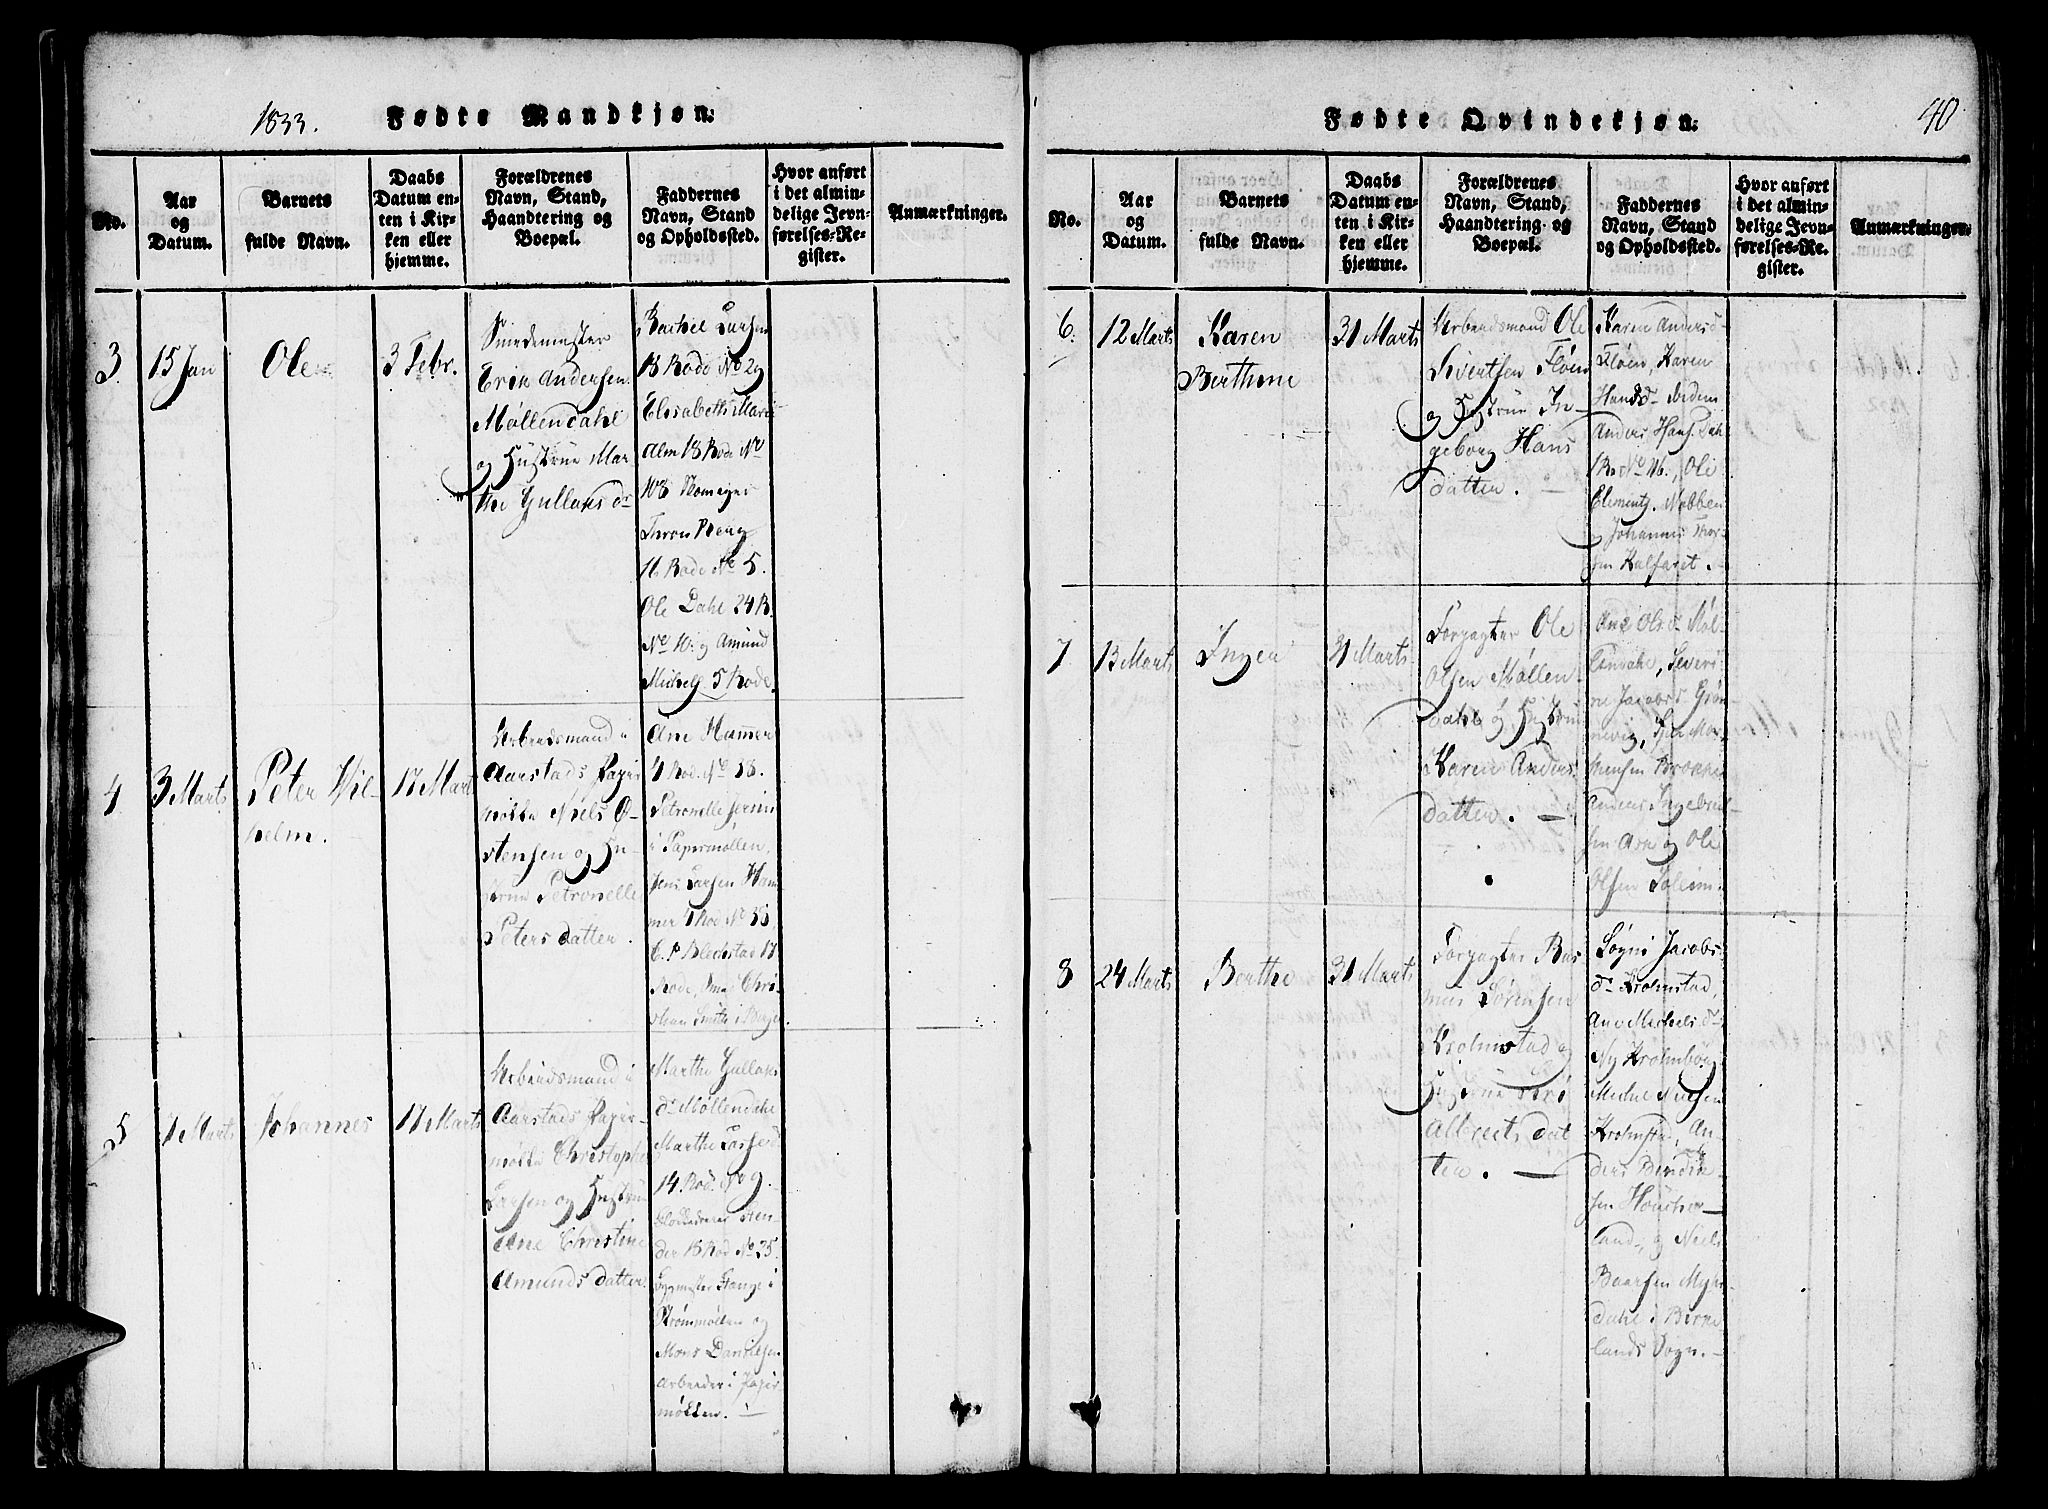 1833.
Fødte Mandkjøn:
No.
Aar
og
Datum.
Barnets
fulde Navn.
Daabs
Datum en-
ten i Kir-
ken eller
hjemme.
Forældrenes
Navn, Stand,
Haandtering og
Boepæl.
Faddernes
Navn, Stand
og Opholdssted.
Hvor anført
i det almin-
delige Jevn-
førelses-Re-
gister.
Anmærkninger.
3
15 Jan
Ole
3 Febr.
Smedemester
Erik Andersen
Møllendahl
og Hustrue Mar
the Gullaks dr
Rachel Larsen
15 Rode No 29
Elisabeth Marie
Alm 18 Rode No
108
Berg
16 Rode No 5.
Ole Dahl 24 R.
No 10. og Amund
Michels 5 Rode.
4
3 Marts
Peter Wil-
helm.
17 Mart
Arbeidsmand i
Aarstads Papir
mølle Niels Ø-
stensen og Hu-
strue Petronelle
Peters datter.
Ane Hammer
4 Rod. No 58.
Petronelle
i Papirmøllen,
Jens Larsen Ham
mer 4 Rod No 58
C. P. Blechstad 17
Rode, Smed Chri-
stian Smith i Bergen.
5
7 Marts
Johannes
17 Marts
Arbeidsmand i
Aarstads Papir-
mølle Christopher
Larsen og Hustrue
Ane Christine
Amunds datter.
Marthe Gullaks
dr Møllendahl
Marthe Lassesd
14 Rod. No 9.
der 15 Rod No 25.
Bygmester Stange i
Strømmøllen og
Mons Danielsen
Arbeider i Papir
møllen. —
Fødte Qvindekjøn:
40
No.
Aar
og
Datum.
Barnets
fulde Navn.
Daabs
Datum en-
ten i Kir-
ken eller
hjemme.
Forældrenes
Navn, Stand,
Haandtering og
Boepæl.
Faddernes
Navn, Stand
og Opholdssted.
Hvor anført
i det almin-
delige Jevn-
førelses-Re-
gister.
Anmærkninger.
6.
12 Marts
Karen
Berthine
31 Marts
Arbeidsmand Ole
Sivertsen Fløen
og Hustrue In-
geborg Hans
datter. —
Karen Andersd
Fløen, Karen
Hansd ibidem
Anders Hans. Dahl
1 R. No 16., Ole
Clements. Nobben
og Johannes Thor-
sen Kalfaret. —
7
13 Marts
Inger
31 Marts.
Forpagter Ole
Olsen Møllen
dahl og Hustrue
Karen Anders
datter. —
Ane Olsdr Møl-
lendahl, Severi-
ne Jacobsd Grøn
nevig,
Anders Ingebrigt
sen Ask og Ole
Olsen Soleim.
8
24 Marts
Berthe
31 Marts
Forpagter Ras
mus Sørensen
Kronstad og
Hustrue Siri
Albreets dat
ter. —
Søgni Jacobs
dr Kronstad,
Ane Michels dr
Ny Kronborg
Michel Nielsen
Kronstad, An-
ders Bendik
sen Houcke-
land, og Niels
Baarsen Myr-
dahl i Birke-
lands Sogn. —